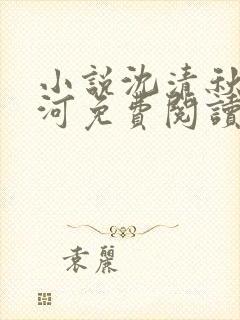 小說沈清秋
河免費閱讀
袁麗